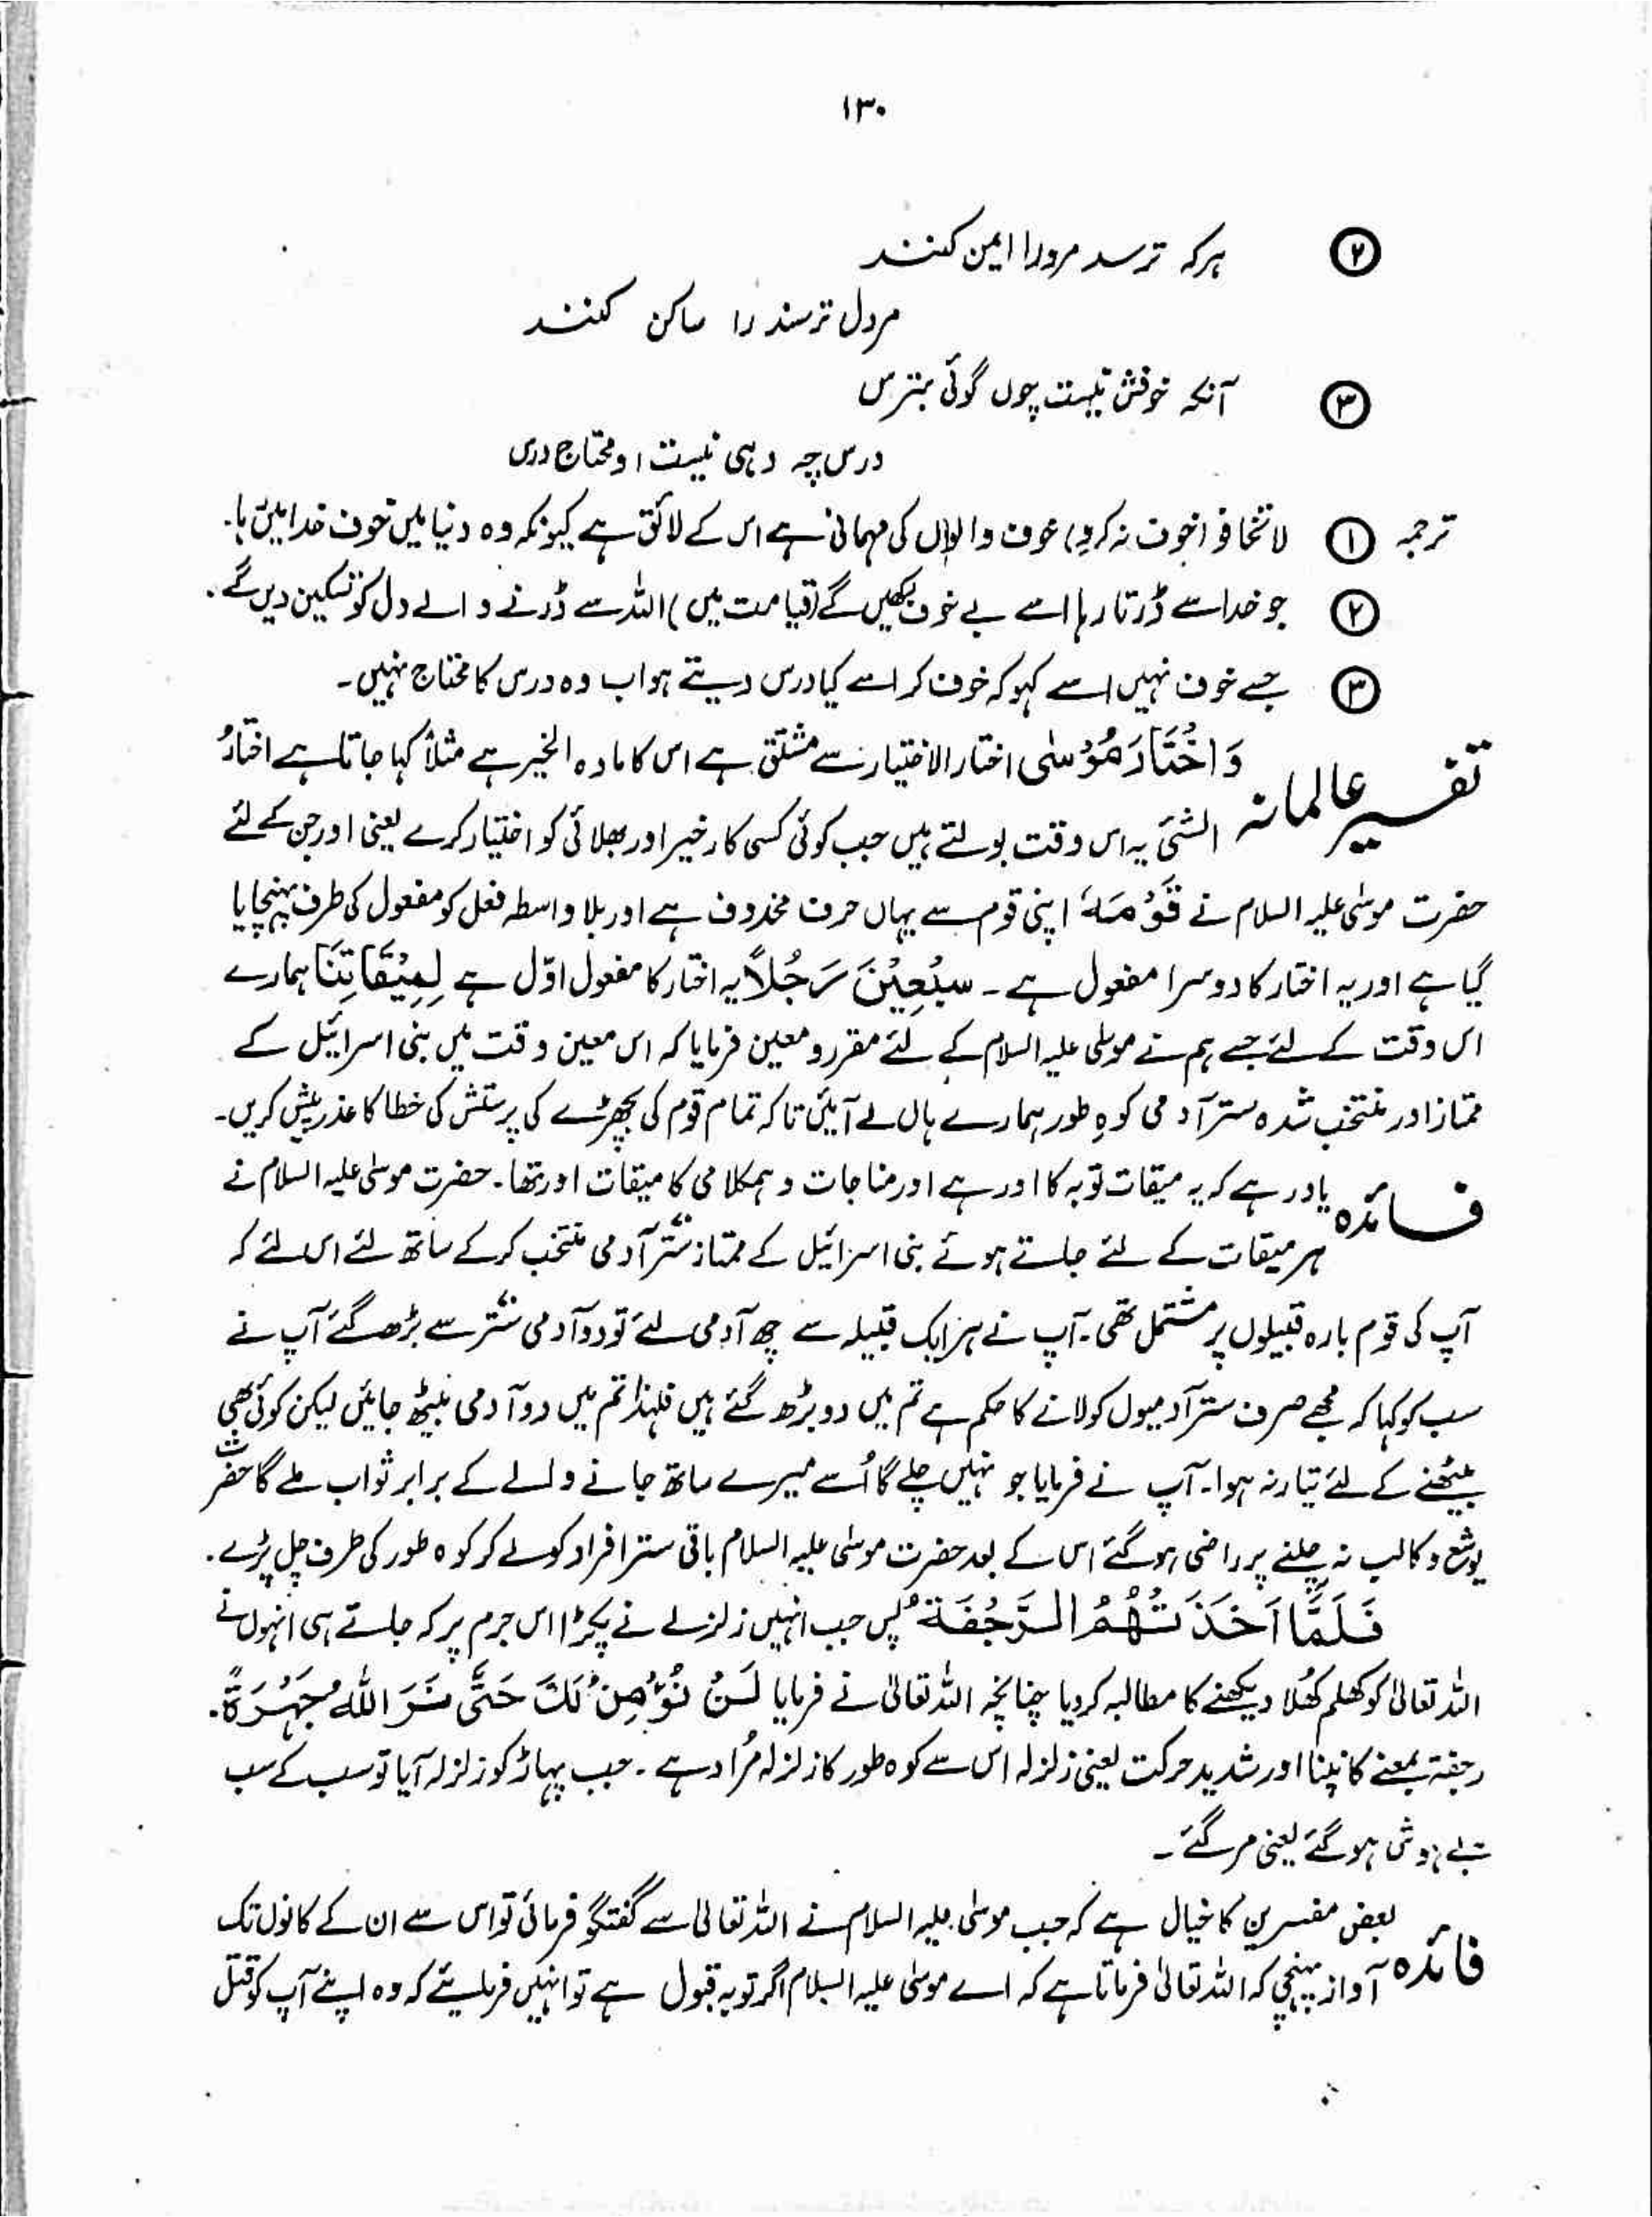 ۱۳۰
② ہرکہ ترسد مرورا ایمن کنند
مردل ترسندہ را ساکن کنند
③ آنکہ خوفش نیست چوں گوئی مترس
درس چہ دہی نیست او محتاج درس
ترجمہ ① لا تخافوا (خوف نہ کرو) خوف والوں کی مہمانی ہے اس کے لائق ہے کیونکہ وہ دنیا میں خوف خدا میں رہا۔
② جو خدا سے ڈرتا رہا اسے بے خوف رکھیں گے (قیامت میں) اللہ سے ڈرنے والے دل کو تسکین دیں گے۔
③ جسے خوف نہیں اسے کہو کہ خوف کر اسے کیا درس دیتے ہو اب وہ درس کا محتاج نہیں۔
تفسیر عالمانہ وَاخْتَارَ مُوْسٰی اختار الاختیار سے مشتق ہے اس کا مادہ الخیر ہے مثلاً کہا جاتا ہے اختارُ
الشئَ یہ اس وقت بولتے ہیں جب کوئی کسی کار خیر اور بھلائی کو اختیار کرے یعنی اور چن کے لئے
حضرت موسٰی علیہ السلام نے قَوْمَہٗ اپنی قوم سے یہاں حرف محذوف ہے اور بلا واسطہ فعل کو مفعول کی طرف پہنچایا
گیا ہے اور یہ اختار کا دوسرا مفعول ہے۔ سَبْعِیْنَ رَجُلًا یہ اختار کا مفعول اوّل ہے لِمِیْقَاتِنَا ہمارے
اس وقت کے لئے جسے ہم نے موسٰی علیہ السلام کے لئے مقرر و معین فرمایا کہ اس معین وقت میں بنی اسرائیل کے
ممتاز اور منتخب شدہ ستر آدمی کوہِ طور ہمارے ہاں لے آئیں تاکہ تمام قوم کی بچھڑے کی پرستش کی خطا کا عذر پیش کریں۔
فائدہ یاد رہے کہ یہ میقات توبہ کا اور ہے اور مناجات و ہمکلامی کا میقات اور تھا۔ حضرت موسٰی علیہ السلام نے
ہر میقات کے لئے جاتے ہوئے بنی اسرائیل کے ممتاز ستر آدمی منتخب کر کے ساتھ لئے اس لئے کہ
آپ کی قوم بارہ قبیلوں پر مشتمل تھی۔ آپ نے ہر ایک قبیلہ سے چھ آدمی لئے تو دو آدمی ستر سے بڑھ گئے آپ نے
سب کو کہا کہ مجھے صرف ستر آدمیوں کو لانے کا حکم ہے تم میں دو بڑھ گئے ہیں فلہذا تم میں دو آدمی بیٹھ جائیں لیکن کوئی بھی
بیٹھنے کے لئے تیار نہ ہوا۔ آپ نے فرمایا جو نہیں چلے گا اُسے میرے ساتھ جانے والے کے برابر ثواب ملے گا حضرت
یوشع و کالب نہ چلنے پر راضی ہو گئے اس کے بعد حضرت موسٰی علیہ السلام باقی ستر افراد کو لے کر کوہ طور کی طرف چل پڑے۔
فَلَمَّا اَخَذَتْهُمُ الرَّجْفَةُ پس جب انہیں زلزلے نے پکڑا اس جرم پر کہ جاتے ہی انہوں نے
اللہ تعالٰی کو کھلم کھلا دیکھنے کا مطالبہ کر دیا چنانچہ اللہ تعالٰی نے فرمایا لَنْ نُؤْمِنَ لَكَ حَتّٰى نَرَ اللّٰهَ جَهْرَةً۔
رجفۃ بمعنے کانپنا اور شدید حرکت یعنی زلزلہ اس سے کوہ طور کا زلزلہ مُراد ہے۔ جب پہاڑ کو زلزلہ آیا تو سب کے سب
بے ہوش ہو گئے یعنی مر گئے۔
فائدہ بعض مفسرین کا خیال ہے کہ جب موسٰی علیہ السلام نے اللہ تعالٰی سے گفتگو فرمائی تو اس سے ان کے کانوں تک
آواز پہنچی کہ اللہ تعالٰی فرماتا ہے کہ اے موسٰی علیہ السلام اگر توبہ قبول ہے تو انہیں فرمایئے کہ وہ اپنے آپ کو قتل